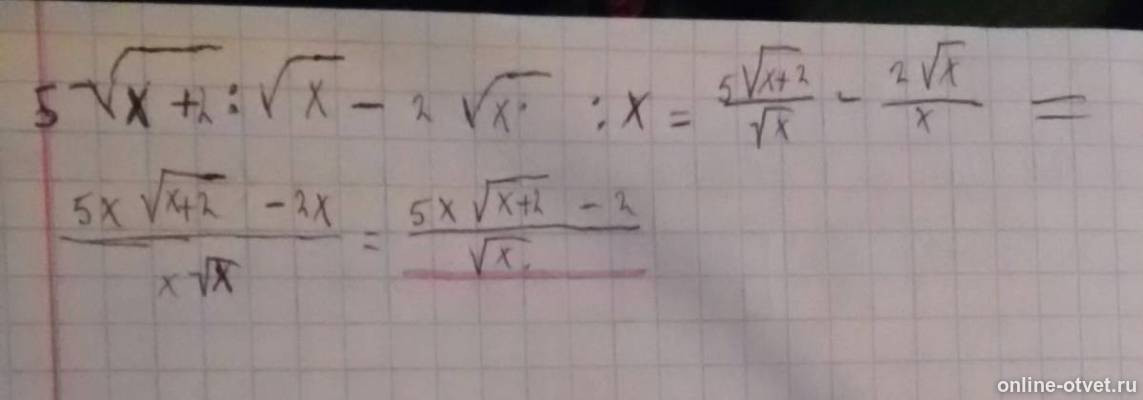 5√(x+2) : √x − 2√x : x = 5√(x+2)/√x − 2√x/x =
(5x√(x+2) − 2x)/(x√x) = (5x√(x+2) − 2)/√x
online-otvet.ru